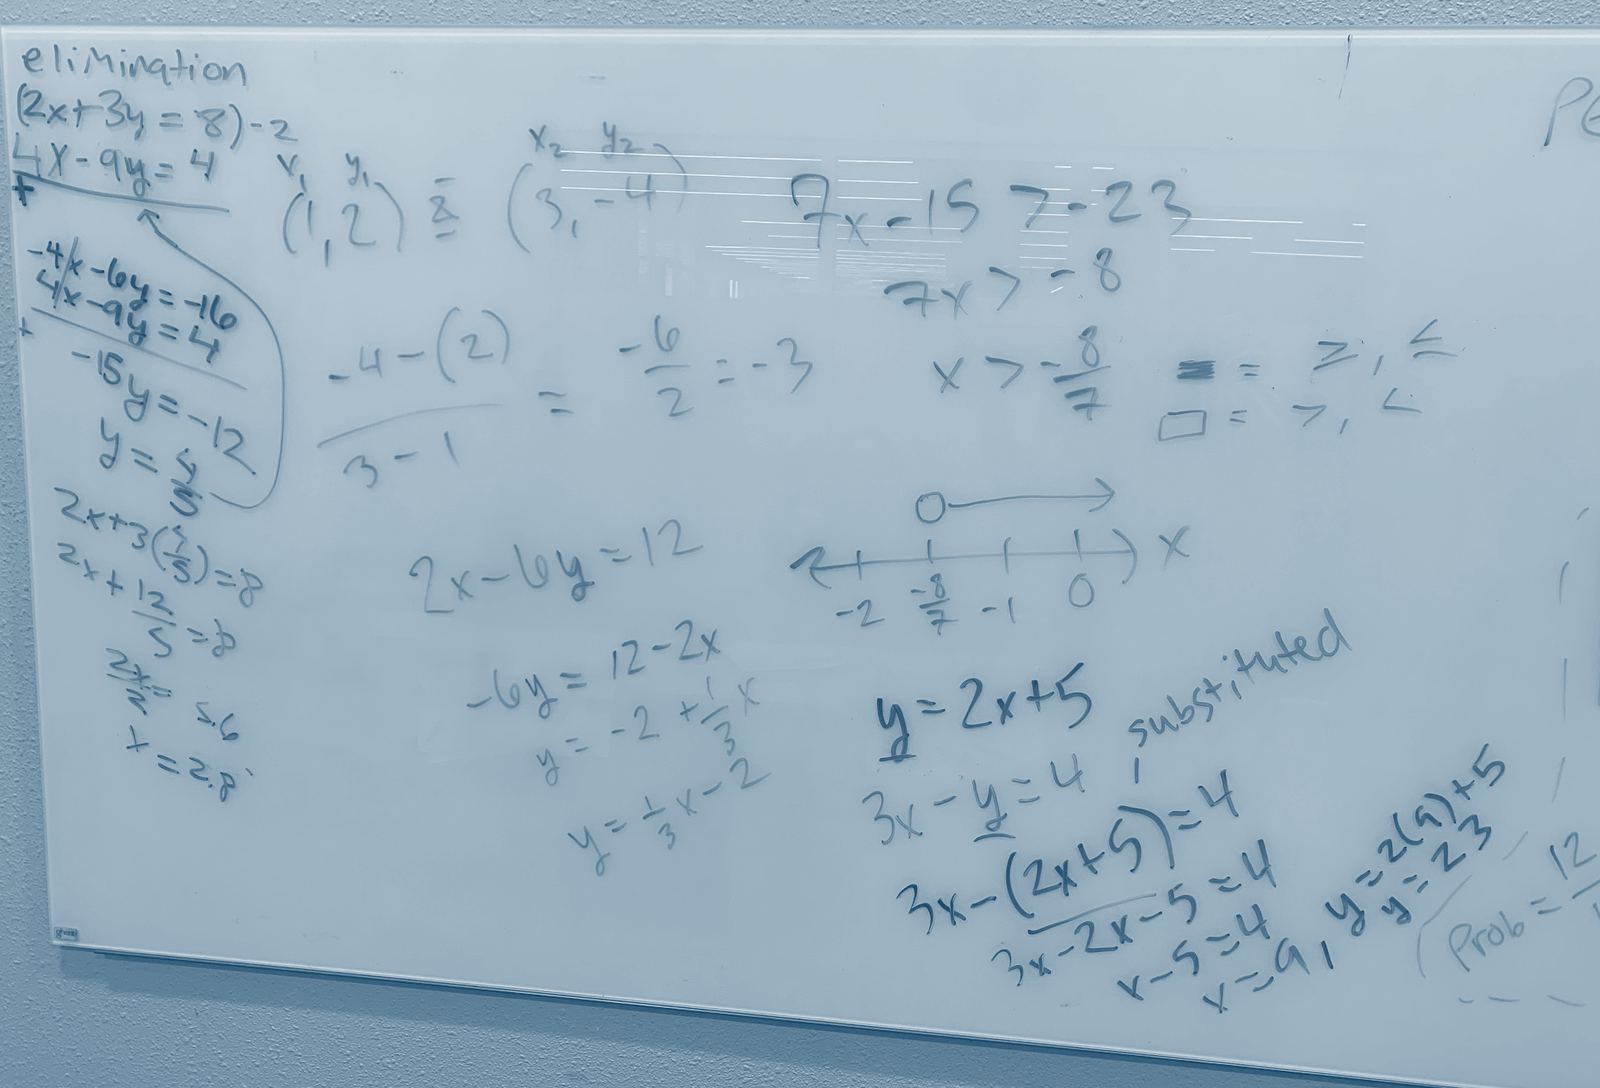 elimination
(2x+3y=8)-2
4x-9y=4
+
-4x-6y=-16
4x-9y=4
+
-15y=-12
y=4/5
2x+3(4/5)=8
2x+12/5=8
2x/2=5.6
x=2.8
x₁ y₁ x₂ y₂
(1,2) & (3,-4)
-4-(2)/3-1 = -6/2=-3
2x-6y=12
-6y=12-2x
y=-2+1/3x
y=1/3x-2
7x-15>-23
7x>-8
x>-8/7
■= ≥, ≤
□= >, <
x
-2 -8/7 -1 0
y=2x+5
substituted
3x-y=4
3x-(2x+5)=4
3x-2x-5=4
x-5=4
x=9,
y=2(9)+5
y=23
Prob=12